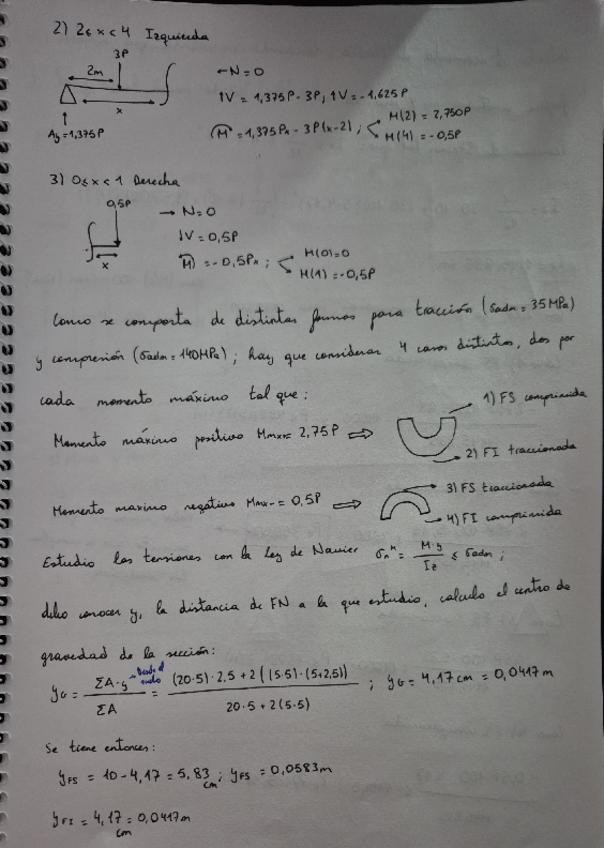 2) 2≤x<4 Izquierda
3P
2m
x
Ay=1,375P
←N=0
↑V=1,375P-3P; ↑V=-1,625P
M=1,375Px-3P(x-2); M(2)=2,750P
M(4)=-0,5P
3) 0≤x<1 Derecha
0,5P
x
→N=0
↑V=0,5P
M=-0,5Px; M(0)=0
M(1)=-0,5P
Como se comporta de distintas formas para tracción (σadm=35MPa)
y compresión (σadm=140MPa); hay que considerar 4 casos distintos, dos por
cada momento máximo tal que:
Momento máximo positivo Mmx+=2,75P ⇒
1) FS comprimida
2) FI traccionada
Momento maximo negativo Mmx-=0,5P ⇒
3) FS traccionada
4) FI comprimida
Estudio las tensiones con la Ley de Navier σ = M·y/Iz ≤ σadm;
debo conocer y, la distancia de FN a la que estudio, calculo el centro de
gravedad de la sección:
yG = ΣA·y/ΣA = (20·5)·2,5+2((5·5)·(5+2,5))/20·5+2(5·5); yG=4,17cm=0,0417m
Desde el
Se tiene entonces:
yFS=10-4,17=5,83cm; yFS=0,0583m
yFI=4,17cm=0,0417m